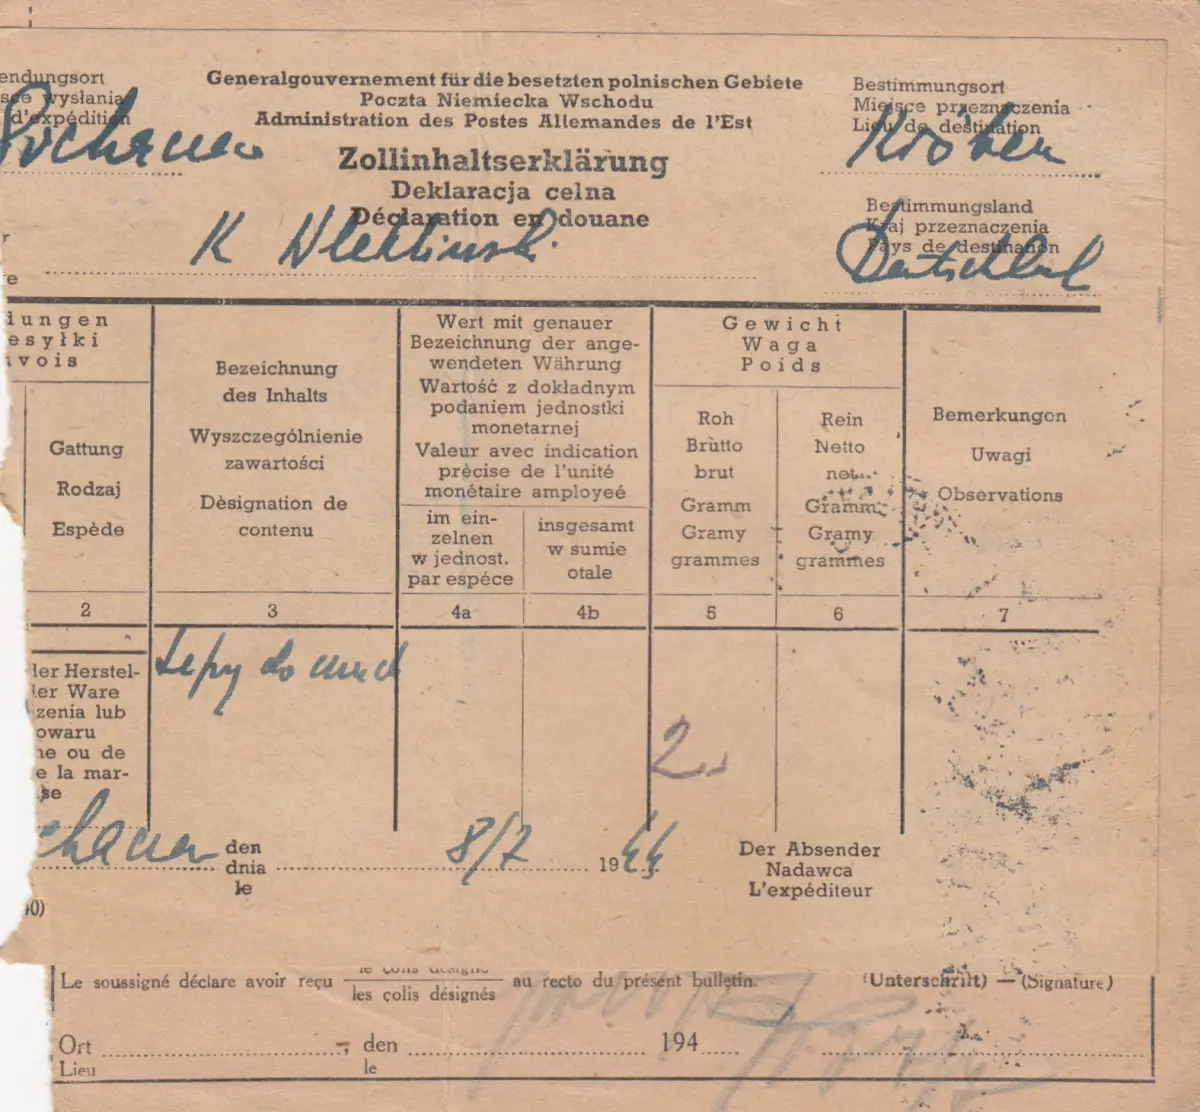 endungsort
sce wysłania
d'expédition
Generalgouvernement für die besetzten polnischen Gebiete
Poczta Niemiecka Wschodu
Administration des Postes Allemandes de l'Est
Zollinhaltserklärung
Deklaracja celna
Déclaration en douane
K
Bestimmungsort
Miejsce przeznaczenia
Lieu de destination
Kröben
Bestimmungsland
Kraj przeznaczenia
Pays de destination
Deutschland
r
e
dungen
esyłki
nvois
Gattung
Rodzaj
Espède
Bezeichnung
des Inhalts
Wyszczególnienie
zawartości
Dèsignation de
contenu
Wert mit genauer
Bezeichnung der ange-
wendeten Währung
Wartość z dokładnym
podaniem jednostki
monetarnej
Valeur avec indication
prècise de l'unité
monétaire amployeé
im ein-
zelnen
w jednost.
par espéce
insgesamt
w sumie
otale
Gewicht
Waga
Poids
Roh
Brutto
brut
Gramm
Gramy
grammes
Rein
Netto
net
Gramm
Gramy
grammes
Bemerkungen
Uwagi
Observations
2 3 4a 4b 5 6 7
der Herstel-
der Ware
zenia lub
owaru
ne ou de
e la mar-
se
2
den
dnia
le
8/7 1944
Der Absender
Nadawca
L'expéditeur
40)
Le soussigné déclare avoir reçu le colis désigné
les colis désignés au recto du présent bulletin.
(Unterschrift) — (Signature)
Ort , den 194
Lieu le